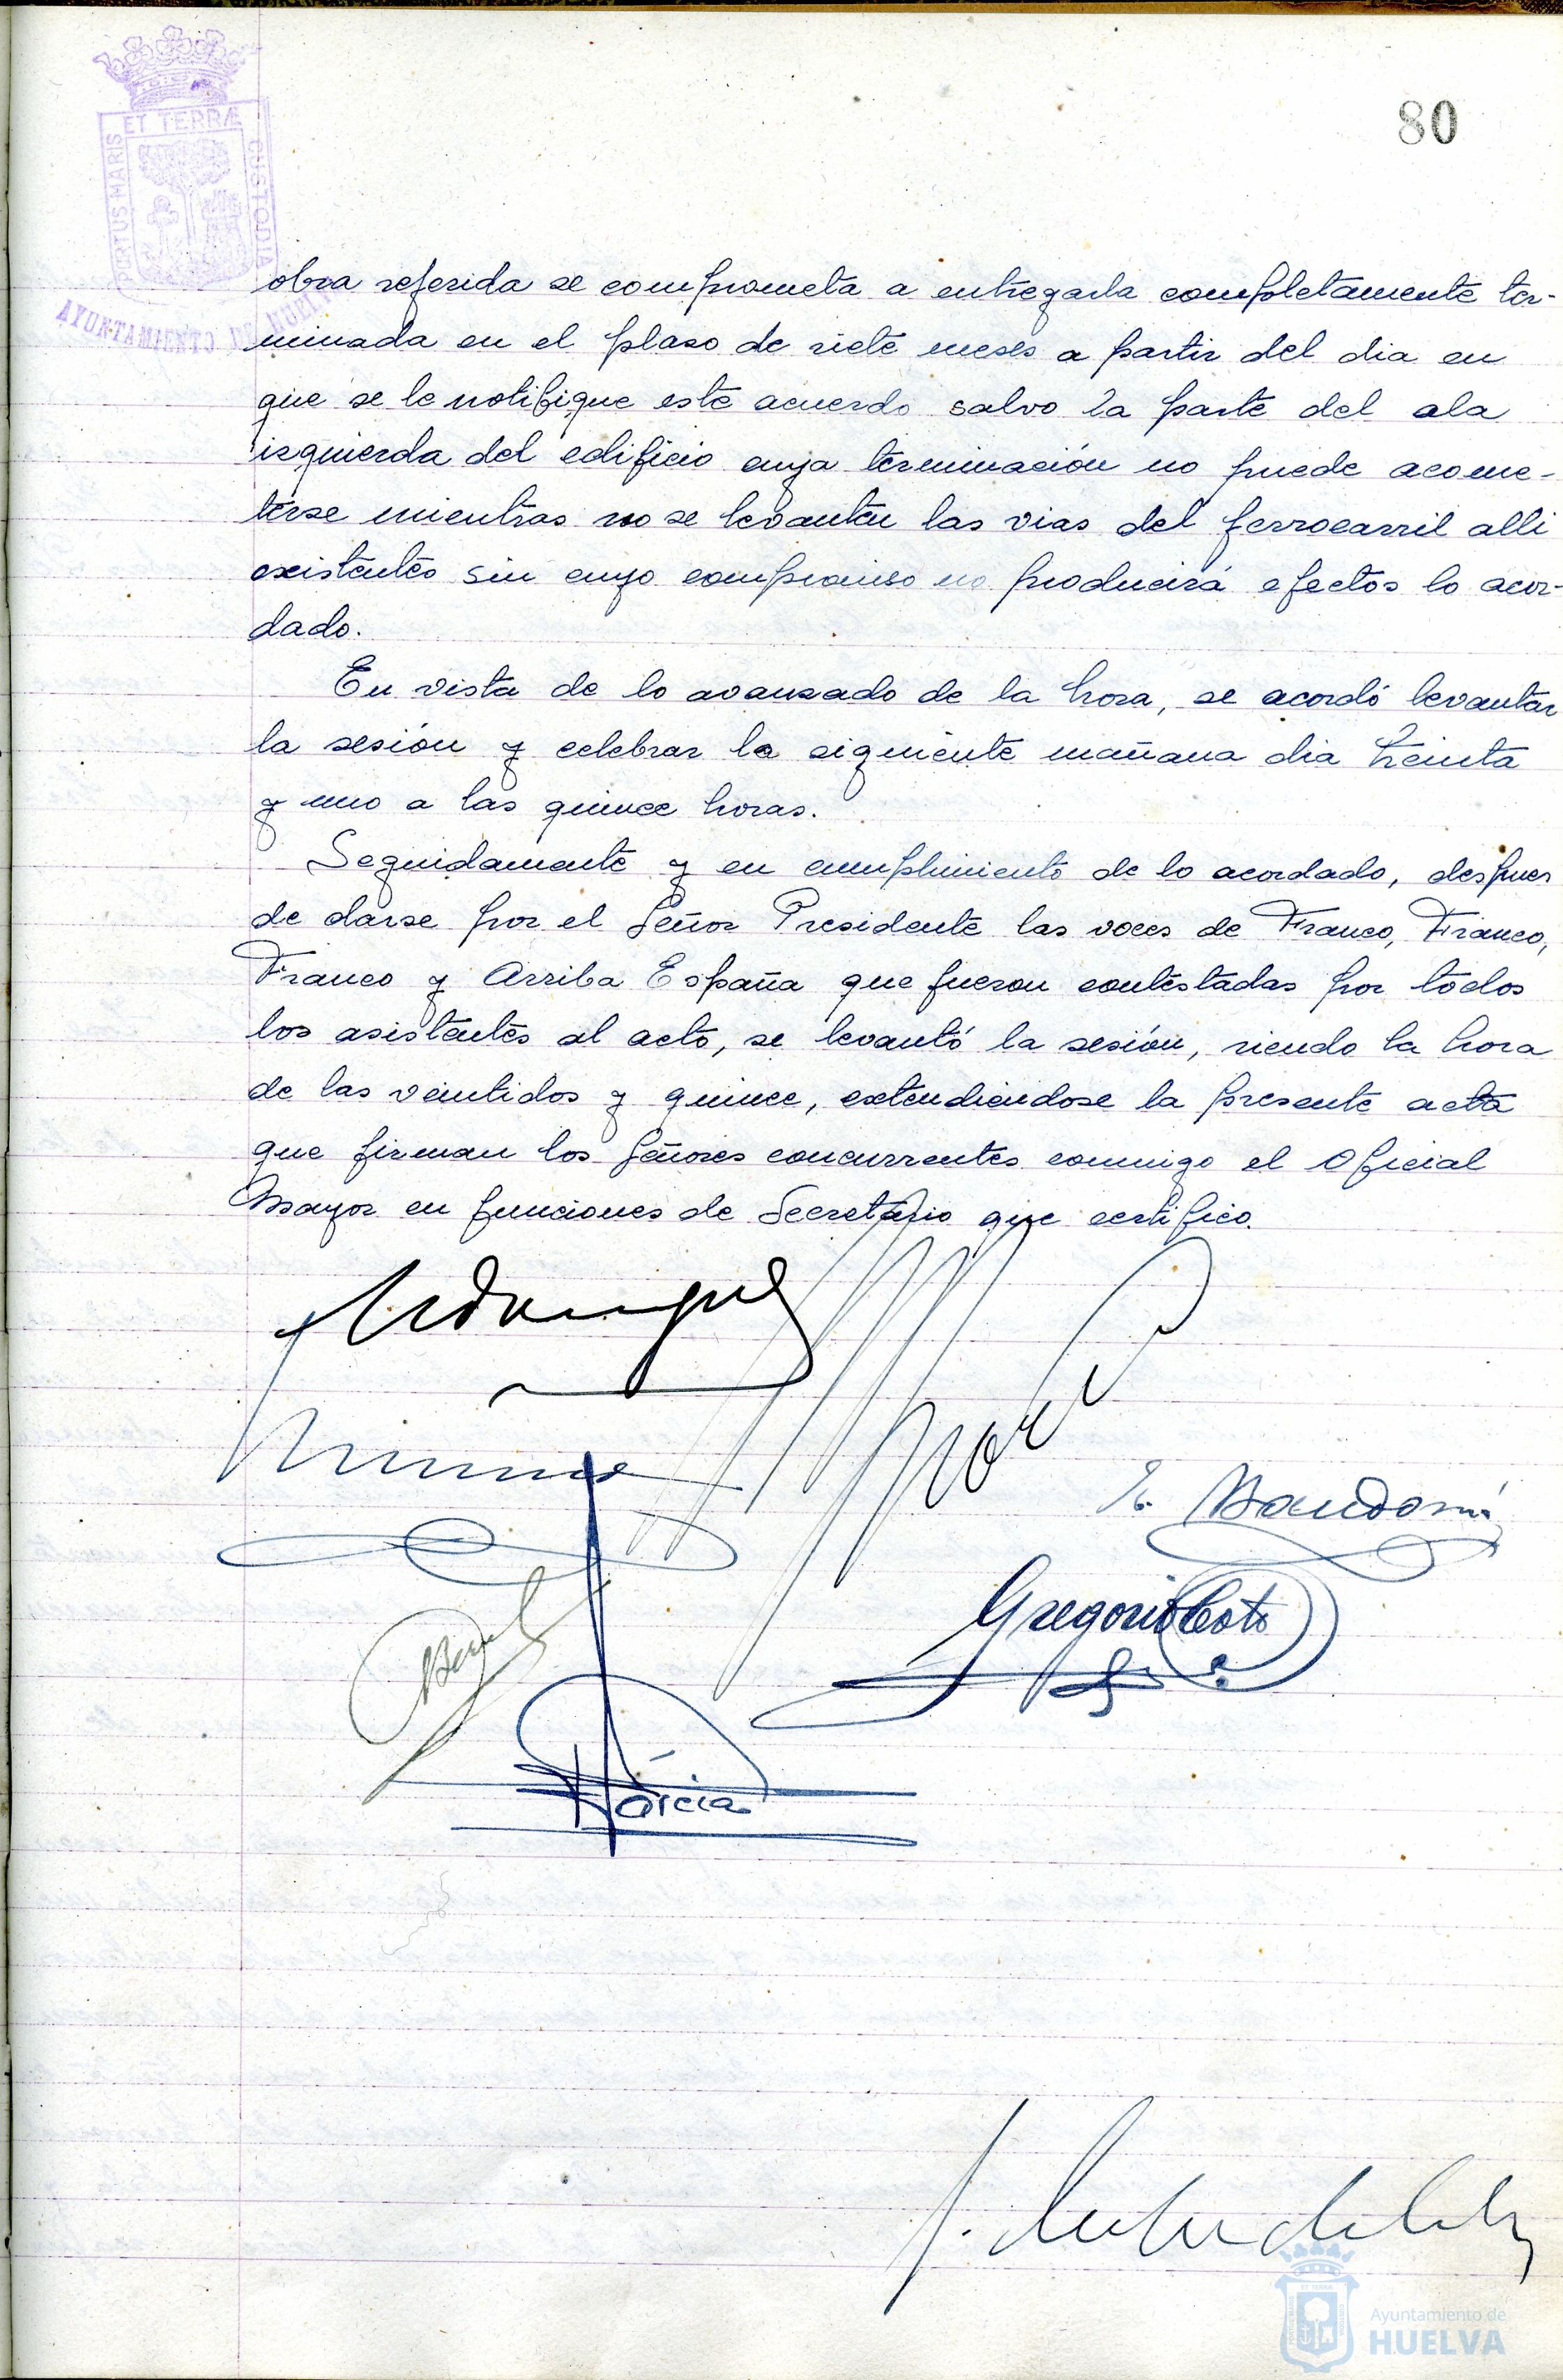 80
PORTUS MARIS ET TERRÆ CUSTODIA
AYUNTAMIENTO DE HUELVA
obra referida se comprometa a entregarla completamente ter-
minada en el plaso de siete meses a partir del dia en
que se le notifique este acuerdo salvo la parte del ala
izquierda del edificio cuya terminación no puede acome-
terse mientras no se levanten las vias del ferrocarril alli
existentes sin cuyo compromiso no producirá efectos lo acor-
dado.
En vista de lo avanzado de la hora, se acordó levantar
la sesión y celebrar la siguiente mañana dia treinta
y uno a las quince horas.
Seguidamente y en cumplimiento de lo acordado, despues
de darse por el Señor Presidente las voces de Franco, Franco,
Franco y Arriba España que fueron contestadas por todos
los asistentes al acto, se levantó la sesión, siendo la hora
de las veintidos y quince, extendiendose la presente acta
que firman los señores concurrentes conmigo el Oficial
Mayor en funciones de Secretario que certifico.
Gregorio Coto
García
Ayuntamiento de
HUELVA